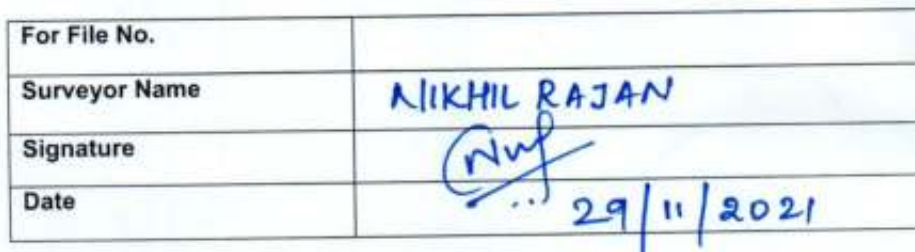 For File No.
Surveyor Name NIKHIL RAJAN
Signature
Date 29/11/2021